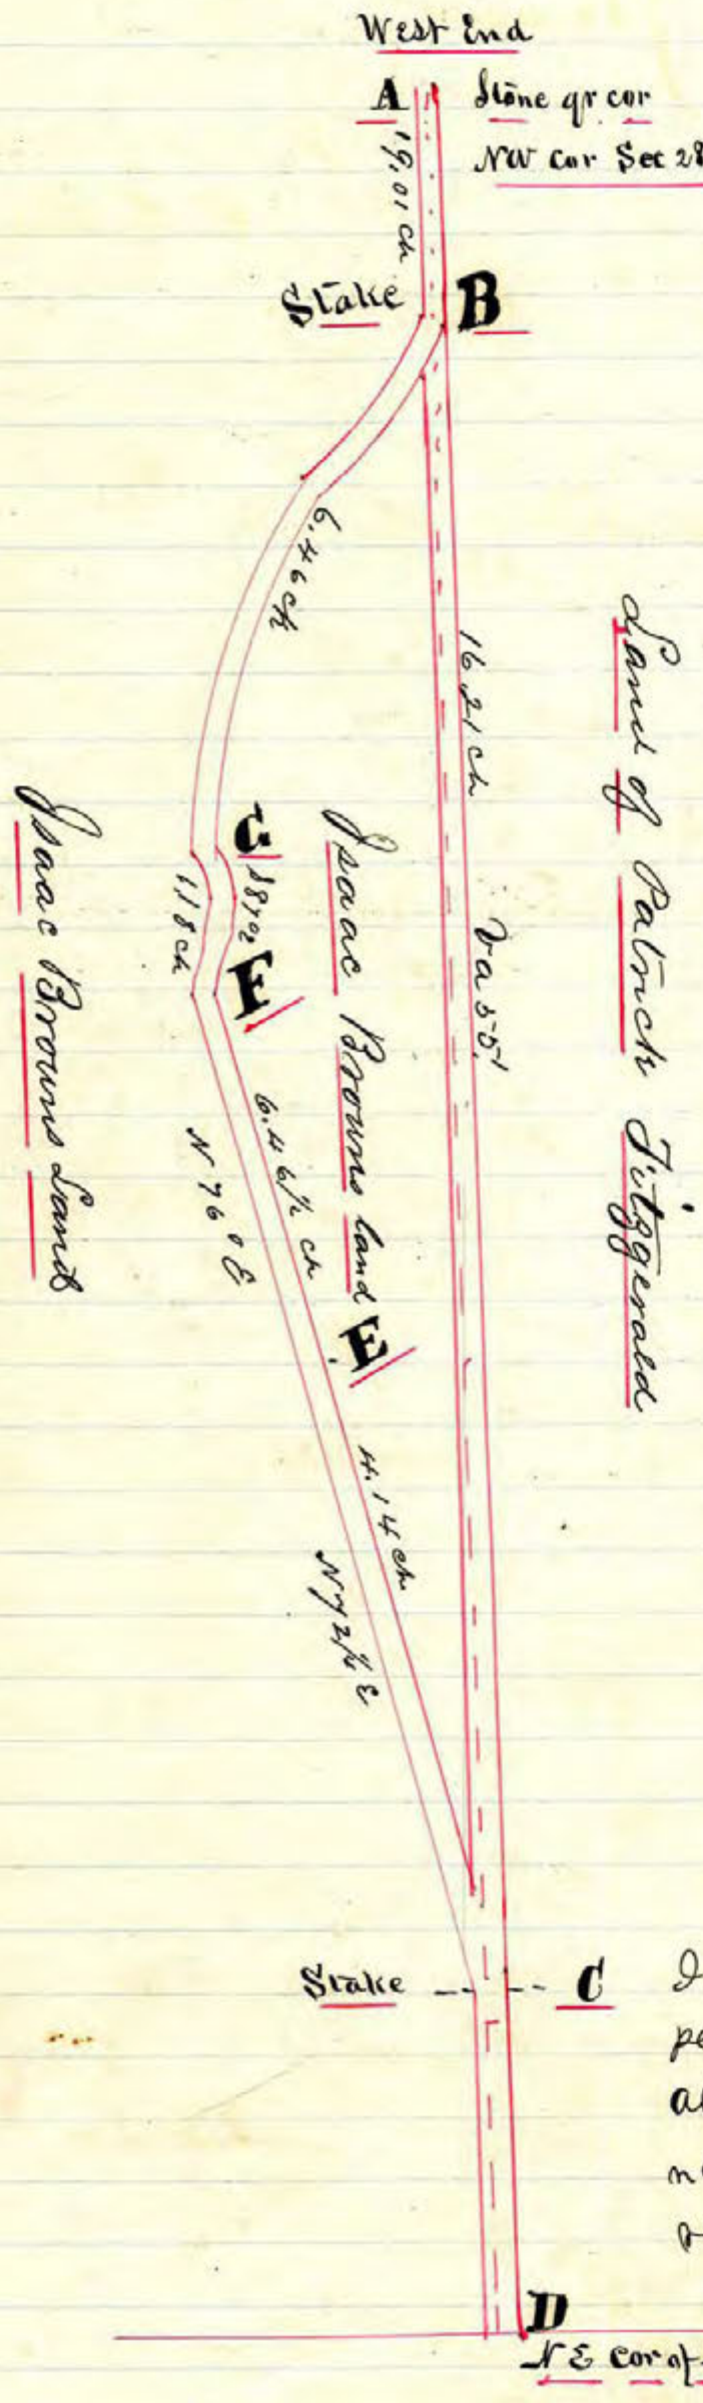 West End
A Stone qr cor
NW Cor Sec 28
19.01 ch
Stake B
6.46 ch
16.21 ch
Va 5.5'
Land of Patrick Fitzgerald
G
F
1.18 ch
Isaac Browns land
Isaac Browns Land
6.46½ ch
N 76° E
E
4.14 ch
N 72¼ E
Stake C
D
N E Cor of